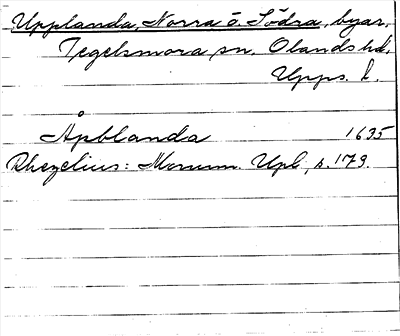 Upplanda, Norra o. Södra, byar,
Tegelsmora sn, Olands hd,
Upps. l.
Åpblanda 1635
Rhezelius: Monum. Upl., s. 179.